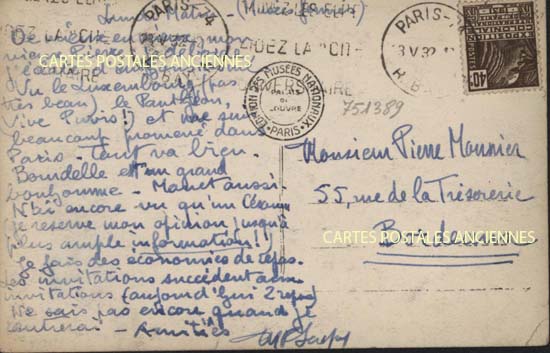 Lundi Matin - (Musées fermés)
De mieux en mieux, mon
vieux Pierre. Je
Vu le Luxembourg (pas
très beau), le Panthéon,
Vive Puvis!) et me suis
beaucoup promené dans
Paris - Tout va bien.
Bourdelle est un grand
bonhomme - Manet aussi -
N'ai encore vu qu'un Cézanne
je réserve mon opinion jusqu'à
plus ample information!!
Je fais des économies de repas.
Les invitations succèdent aux
invitations (aujourd'hui 2 repas)
Ne sais pas encore quand je
rentrerai - Amitiés
PARIS-
V 32
AIDEZ LA "CIT
PARIS-
3 V 32
R. B
UNION DES MUSÉES NATIONAUX
PALAIS
DU
LOUVRE
PARIS
POSTES
40c
751389
Monsieur Pierre Meunier
55, rue de la Trésorerie
Bordeaux
CARTES POSTALES ANCIENNES
CARTES POSTALES ANCIENNES
CARTES POSTALES ANCIENNES